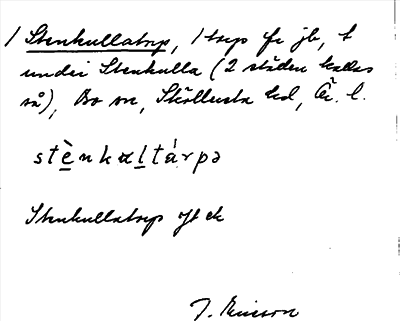 / Stenkullatorp, 1 torp fr jb, t
under Stenkulla (2 städen kallas
så), Bo sn, Sköllersta hd, Ör. l.
stènkaltárpə
Stenkullatorp
J.